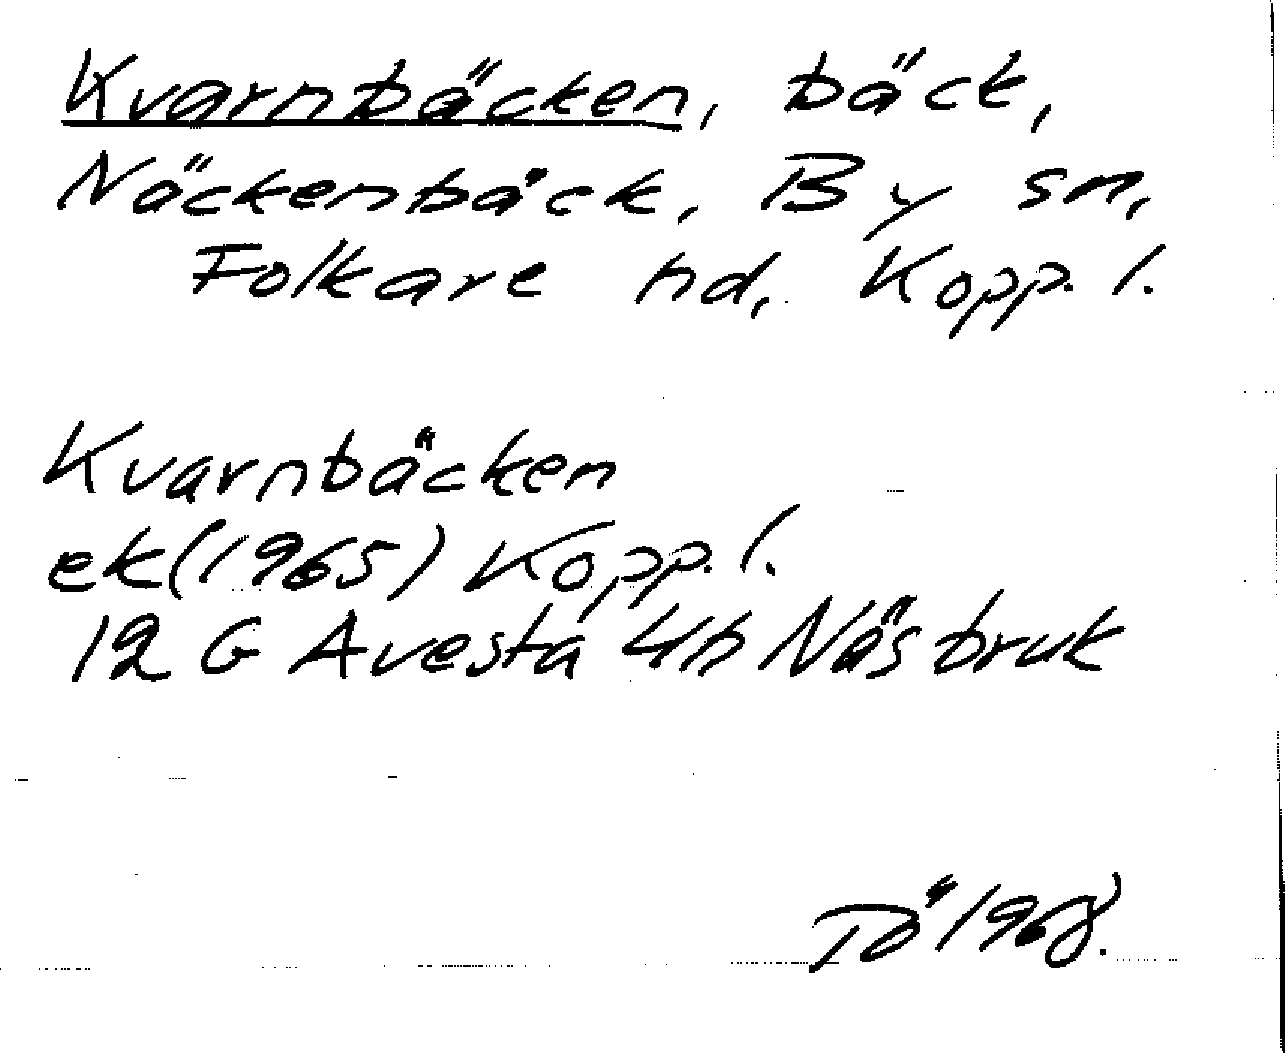 Kvarnbäcken, bäck,
Näckenbäck, By sn,
Folkare hd, Kopp. l.
Kvarnbäcken
ek (1965) Kopp. l.
12 G Avesta 4h Näs bruk
Tö 1968.